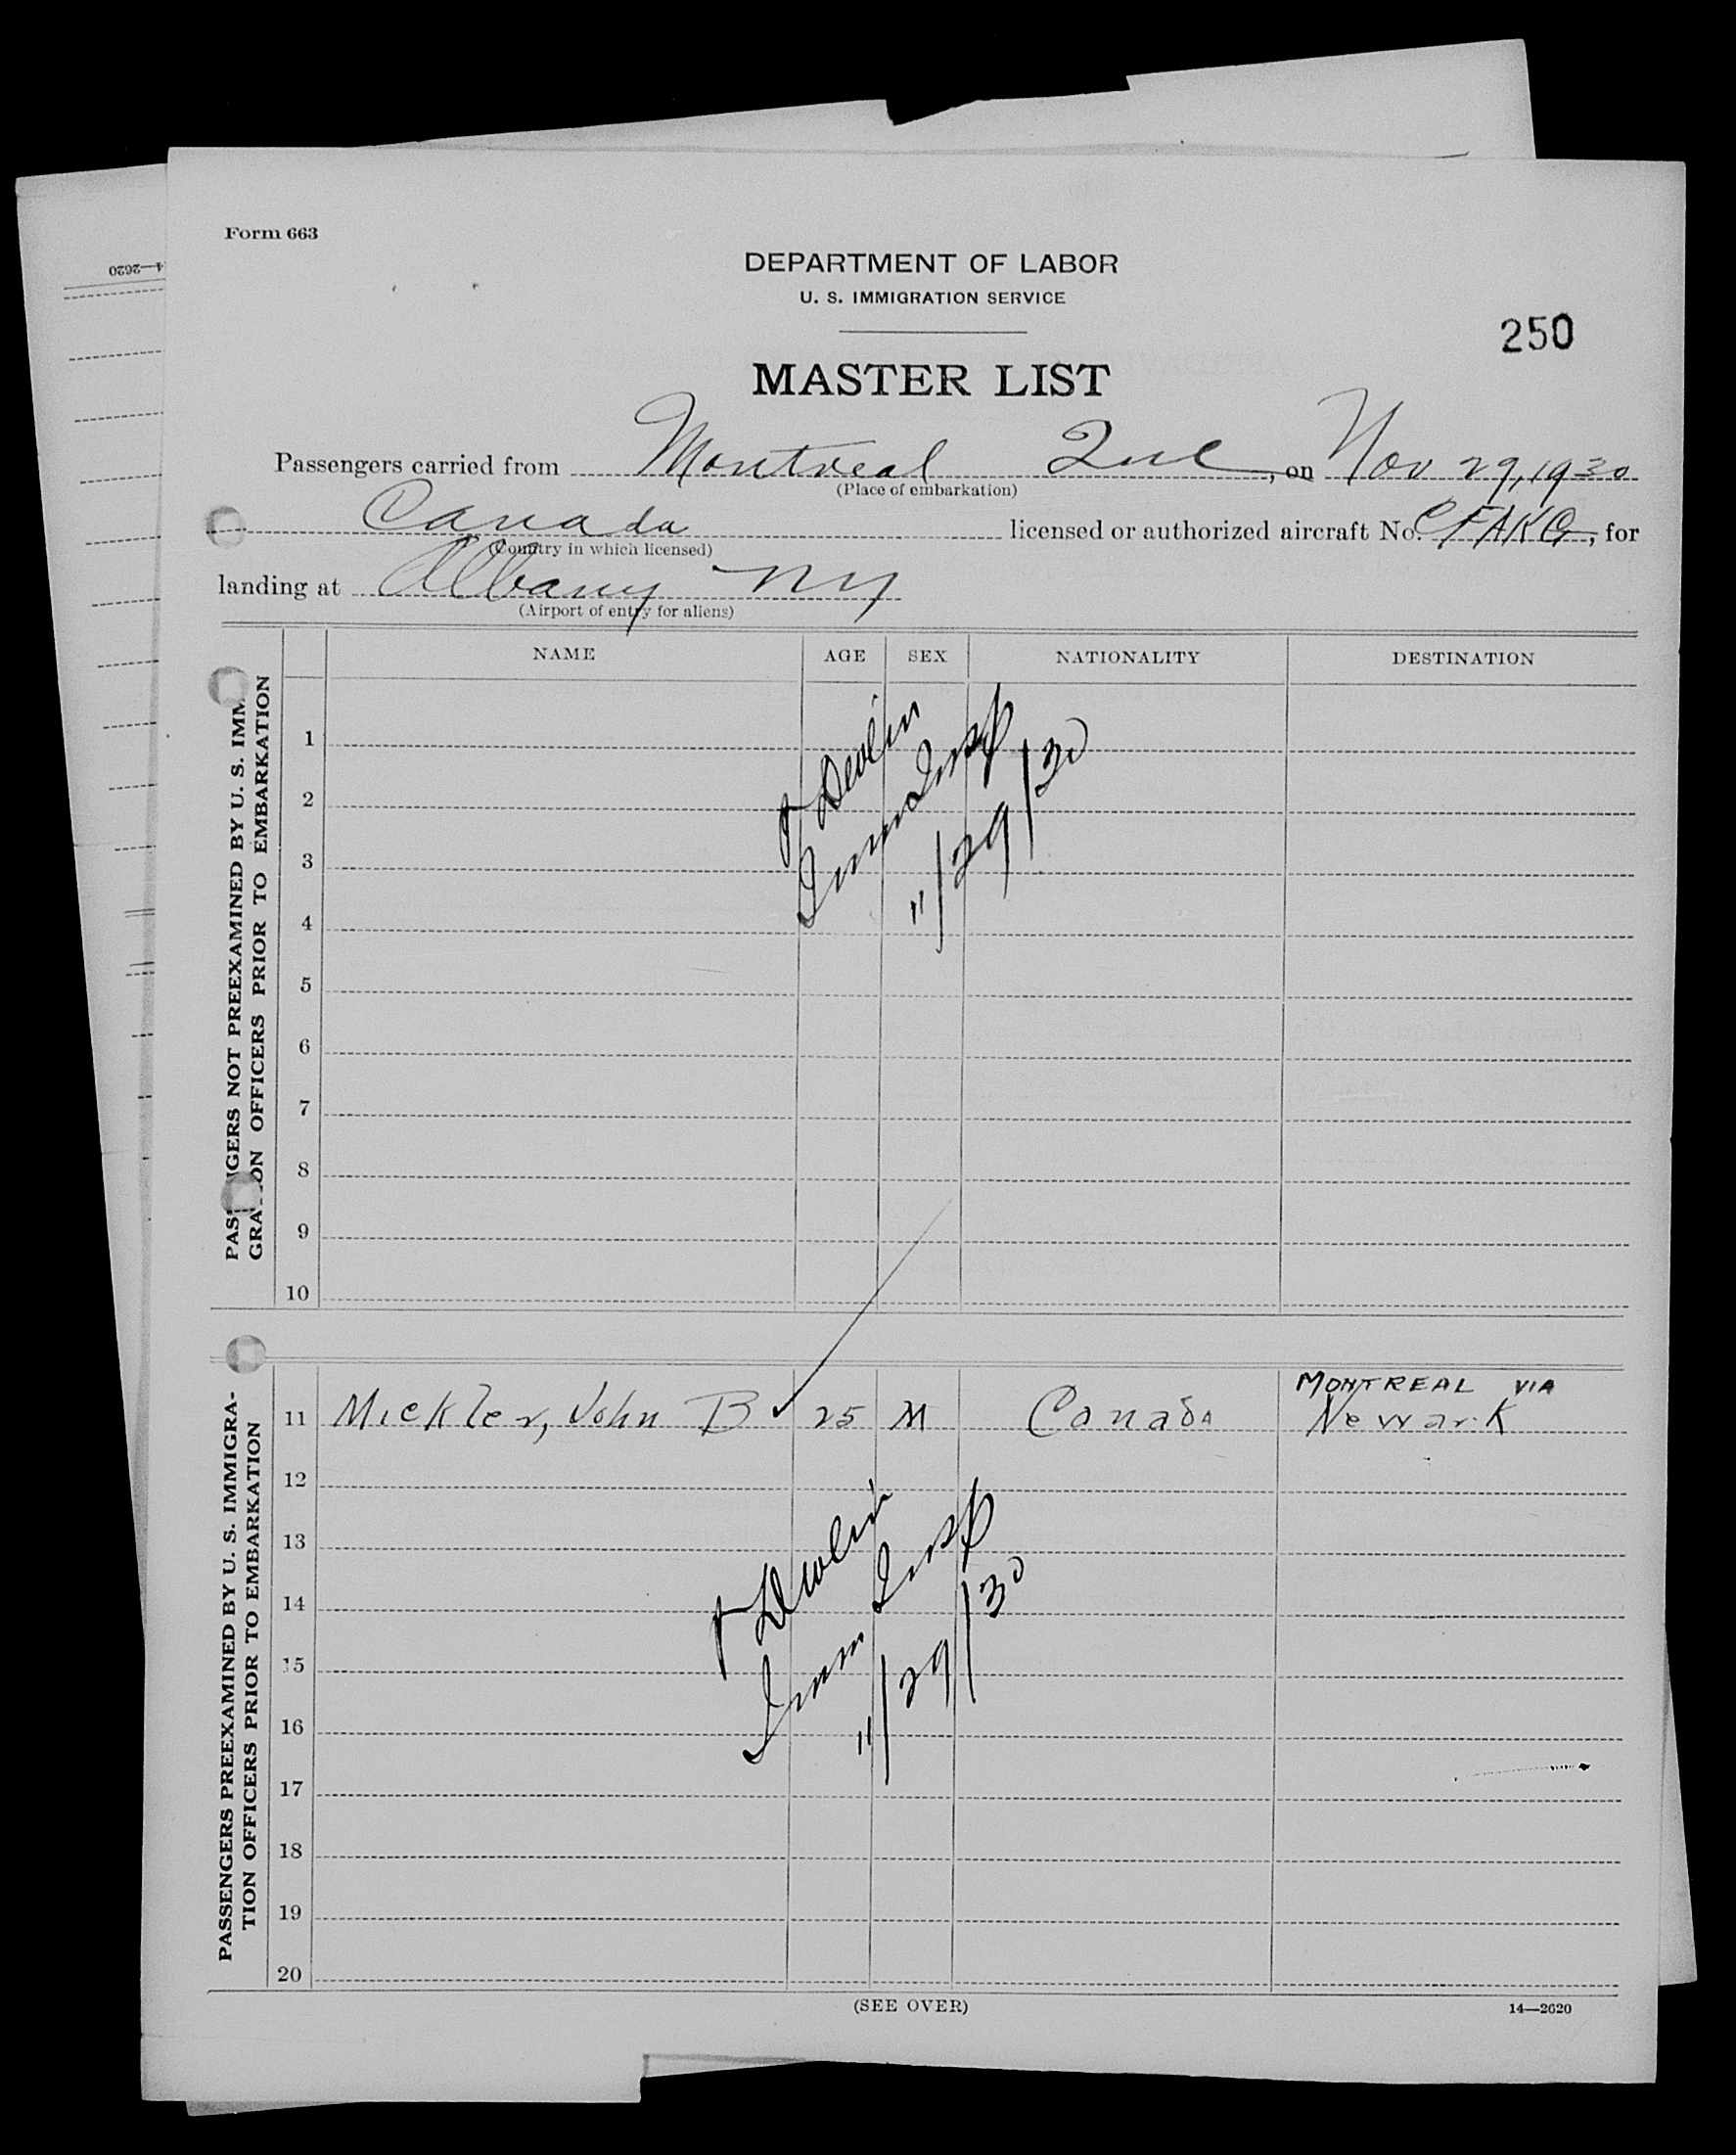 Form 663
DEPARTMENT OF LABOR
U. S. IMMIGRATION SERVICE
250
MASTER LIST
Passengers carried from Montreal Que, on Nov 29, 1930
(Place of embarkation)
Canada licensed or authorized aircraft No. CFAKG, for
(Country in which licensed)
landing at Albany NY
(Airport of entry for aliens)
NAME AGE SEX NATIONALITY DESTINATION
PASS NGERS NOT PREEXAMINED BY U. S. IMM
GRA ON OFFICERS PRIOR TO EMBARKATION
1
2
3
4
5
6
7
8
9
10
Devlin
Imm Insp
11/29/30
PASSENGERS PREEXAMINED BY U. S. IMMIGRA-
TION OFFICERS PRIOR TO EMBARKATION
MONTREAL VIA
11 Mickler, John B 25 M Canada Newark
12
13
14
15
16
17
18
19
20
Devlin
Imm Insp
11/29/30
(SEE OVER) 14—2620
4—2620